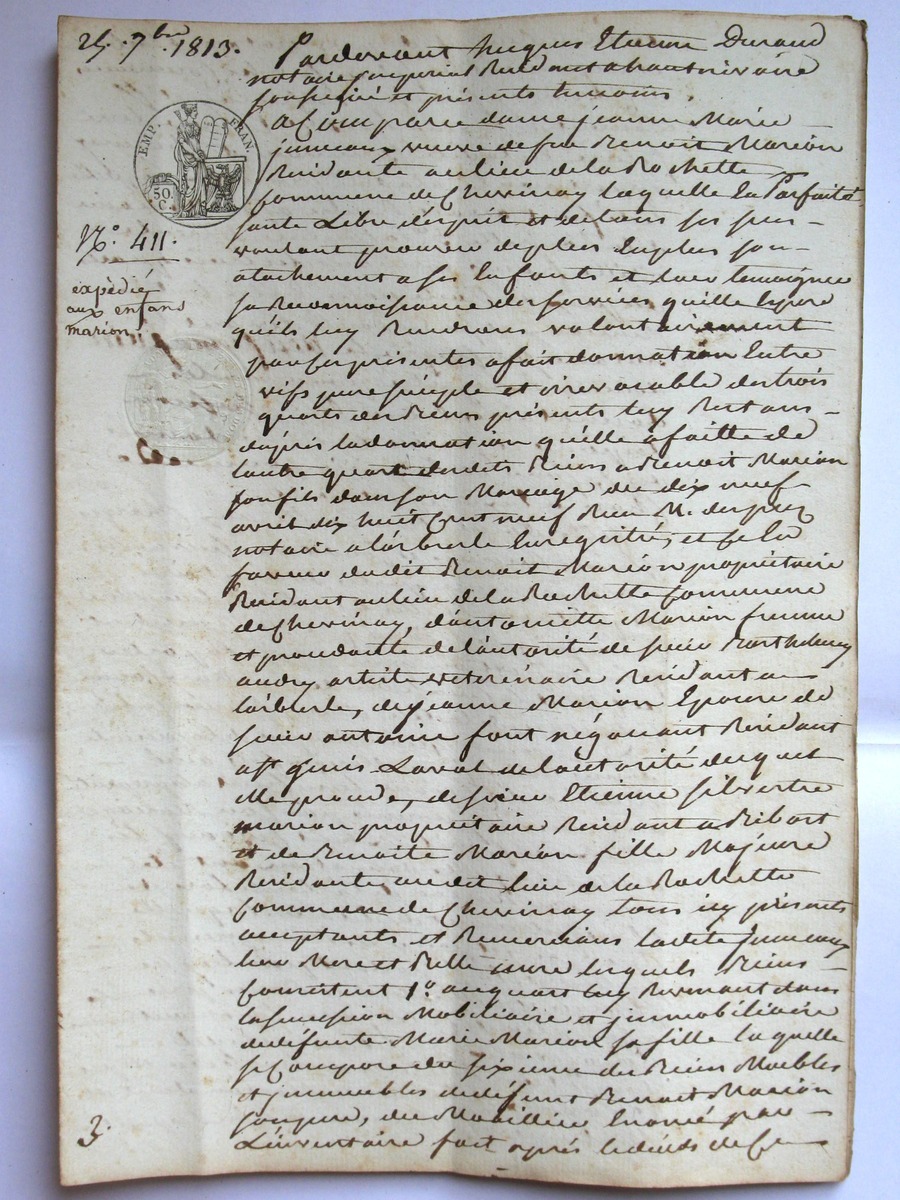 25. 7bre 1813.
EMP. FRAN.
50. C.
N.º 411.
expédié
aux enfans
marion
Pardevant hugues Etienne Durand
notaire imperial Residant a hauterivoire
soussigné et présents temoins.
a Comparu dame jeanne Marie
jumeaux veuve de feu Benoit Marion
Residante au lieu de la Rochette
Commune de Chevinay laquelle En Parfaite
santé Libre d'esprit et de tous ses sens
voulant prouver de plus En plus son
atachement a ses Enfants et leur temoigner
sa Reconnoissance des services qu'elle Espere
qu'ils luy Rendrons volontairement
par ses presentes a fait donnation Entre
vifs pure simple et irrevocable des trois
quarts des Biens présents luy Restans
daprés la donnation qu'elle à faitte de
lautre quart desdits Biens a Benoit Marion
son fils dans son Mariage du dix neuf
avril dix huit Cent neuf Reçu M.
notaire a larbresle Enregistré, et ce En
faveur dudit Benoit Marion propriétaire
Residant au lieu de la Rochette Commune
de Chevinay, d'antoinette Marion femme
et procedante de l'autorité de sieur Barthelemy
audry artiste veterinaire Residant a
larbresle, de jeanne Marion Epouse de
sieur antoine font négociant Residant
a st genis Laval de lautorité duquel
elle procede, de sieur Etienne silvestre
marion propriétaire Residant a Bibost
et de Benoite Marion fille Majeure
Residante audit lieu de la Rochette
Commune de Chevinay tous icy présents
acceptants et Remercians ladite jumeaux
leur Mere et Belle mere lesquels Biens
Consistent 1.º au quart luy Revenant dans
la succession Mobiliaire et jmmobiliaire
de défunte Marie Marion sa fille laquelle
se Compose du sixieme des Biens Meubles
et jmmeubles de défunt Benoit Marion
son pere, du Mobillier Enoncé par
L'inventaire fait après le décès de Ce
3.